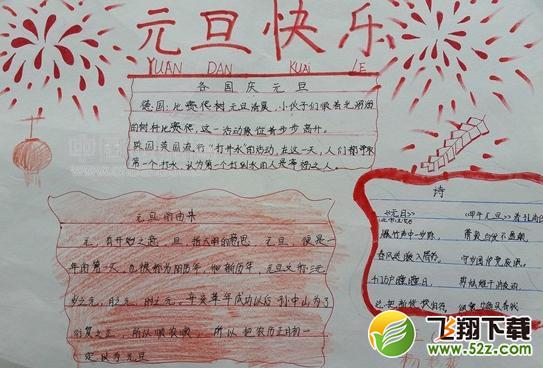 元旦快乐
YUAN DAN KUAI LE
各国庆元旦
德国:比赛爬树 元旦清晨,小伙子们顺着光溜溜
的树杆比赛爬,这一活动象征着步步高升。
英国:英国流行"打井水"的活动,在这一天,人们都争取
第一个打水,认为第一个打到水的人是幸福之人。
元旦的由来
元,有开始之意,旦,指天明的意思,元旦,便是一
年的第一天,也被称为阳历年
元旦又叫三元
岁之元,月之元,时之元,辛亥革年成功以后孙中山为了
所以 把农历正月初一
定为
诗
《元日》
爆竹声中一岁除,
春风送暖入屠苏,
千门万户曈曈日,
《甲午元旦》
萧疏白发不盈颠,
守岁围炉竟废眠。
飞翔下载
www.52z.com